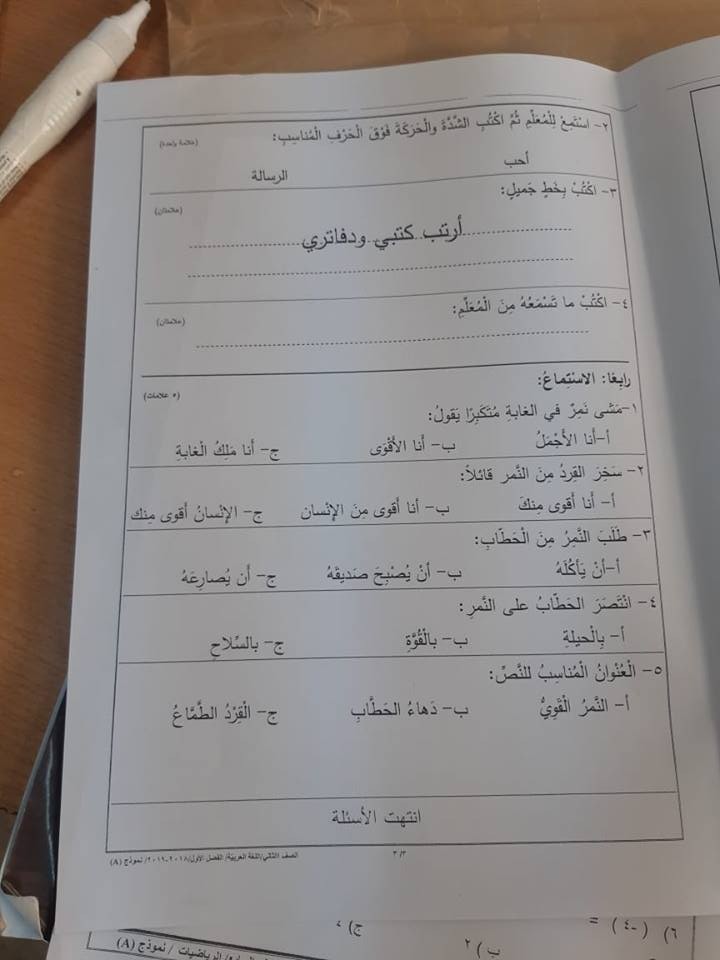 ٢- اسْتَمِعْ لِلْمُعَلِّمِ ثُمَّ اكْتُبِ الشَّدَّةَ والْحَرَكَةَ فَوْقَ الْحَرْفِ الْمُناسِبِ: (علامة واحدة)
أحب الرسالة
٣- اكْتُبْ بِخَطٍ جَميلٍ: (علامتان)
أرتب كتبي ودفاتري
٤- اكْتُبْ ما تَسْمَعُهُ مِنَ الْمُعَلِّمِ: (علامتان)
رابِعًا: الاسْتِماعُ: (٥ علامات)
١-مَشى نَمِرٌ في الغابةِ مُتَكَبِرًا يَقولُ:
أ-أَنا الأَجْمَلُ ب- أَنا الأَقْوَى ج- أَنا مَلِكُ الْغابةِ
٢- سَخِرَ القِردُ مِنَ النَّمر قائلاً:
أ- أَنا أَقوى مِنكَ ب- أنا أَقوى مِنَ الإنْسان ج- الإنْسانُ أَقوى مِنك
٣- طَلَبَ النَّمِرُ مِنَ الْحَطّابِ:
أ-أنْ يَأكُلَهُ ب- أنْ يُصْبِحَ صَديقَهُ ج- أَن يُصارِعَهُ
٤- انْتَصَرَ الحَطّابُ على النَّمرِ:
أ- بِالْحيلةِ ب- بالْقُوَّةِ ج- بالسِّلاحِ
٥- الْعُنْوانُ الْمُناسِبُ للنَّصِّ:
أ- النَّمرُ الْقَوِيُّ ب- دَهاءُ الحَطَّابِ ج- الْقِرْدُ الطَّمَّاعُ
انتهت الأسئلة
الصف الثاني/اللغة العربية/ الفصل الأول/٢٠١٨-٢٠١٩/ نموذج (A) ٣/٣
٦) (-٤) = ج) ٧
ب) ٢
الرياضيات / نموذج (A)